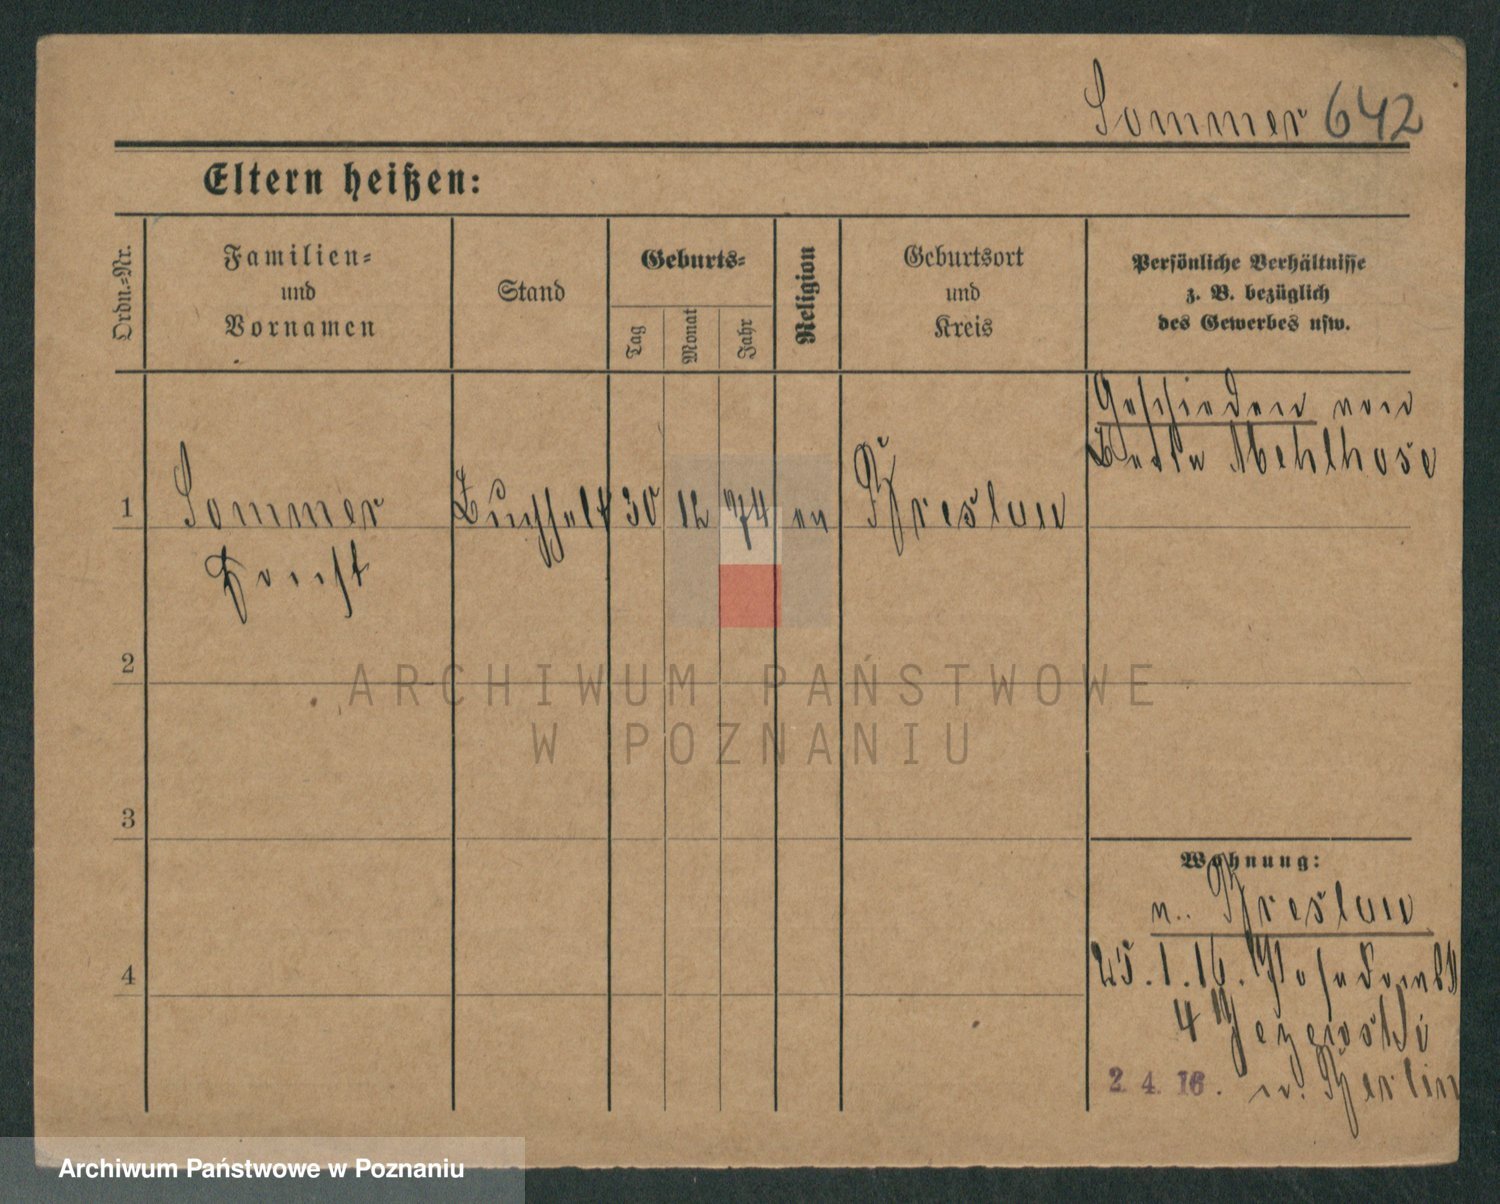 Sommer 642
Eltern heißen:
Ordn.-Nr.
Familien-
und
Vornamen
Stand
Geburts-
Tag
Monat
Jahr
Religion
Geburtsort
und
Kreis
Persönliche Verhältnisse
z. B. bezüglich
des Gewerbes usw.
Geschieden von
Mehlhose
1
Sommer
Buchhalt 30 12 74 ev Breslau
2
3
4
Wohnung:
n. Breslau
25.1.16.
4
2. 4. 16. n. Berlin
ARCHIWUM PAŃSTWOWE
W POZNANIU
Archiwum Państwowe w Poznaniu